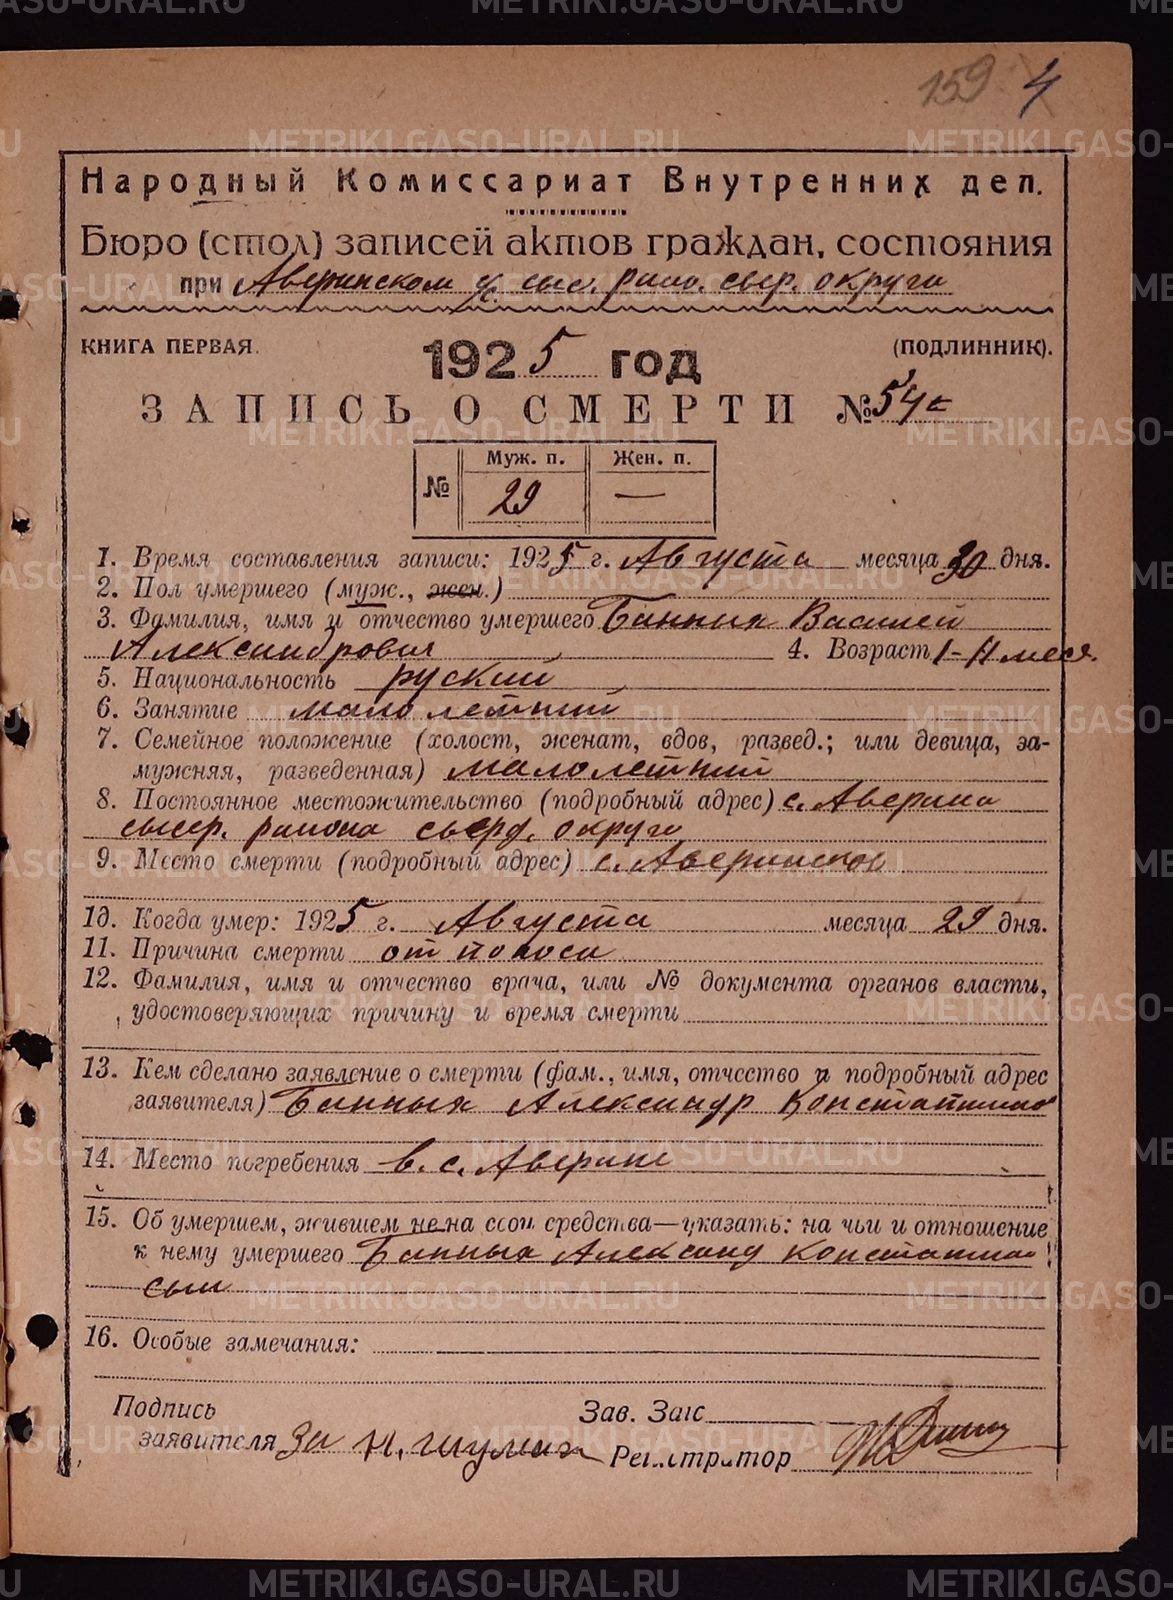 159 4
Народный Комиссариат Внутренних дел.
Бюро (стол) записей актов граждан, состояния
при Аверинском с. сыс. рика. свер. округа
КНИГА ПЕРВАЯ.
1925 год
(ПОДЛИННИК).
ЗАПИСЬ О СМЕРТИ № 54
№ Муж. п. Жен. п.
29 —
1. Время составления записи: 1925 г. Августа месяца 30 дня.
2. Пол умершего (муж., жен.)
3. Фамилия, имя и отчество умершего Банных Василей
Александрович 4. Возраст 1-11 меся.
5. Национальность руский
6. Занятие малолетний
7. Семейное положение (холост, женат, вдов, развед.; или девица, за-
мужняя, разведенная) малолетний
8. Постоянное местожительство (подробный адрес) с. Аверина
сысер. района сверд. округа
9. Место смерти (подробный адрес) с. Аверинское
10. Когда умер: 1925 г. Августа месяца 29 дня.
11. Причина смерти от поноса
12. Фамилия, имя и отчество врача, или № документа органов власти,
удостоверяющих причину и время смерти
13. Кем сделано заявление о смерти (фам., имя, отчество и подробный адрес
заявителя) Банных Александр Константинов
14. Место погребения в. с. Аверине
15. Об умершем, жившем не на свои средства—указать: на чьи и отношение
к нему умершего Банных Александ Константина
сын
16. Особые замечания:
Подпись
заявителя за Н. Шумих
Зав. Загс
Регистратор
METRIKI.GASO-URAL.RU